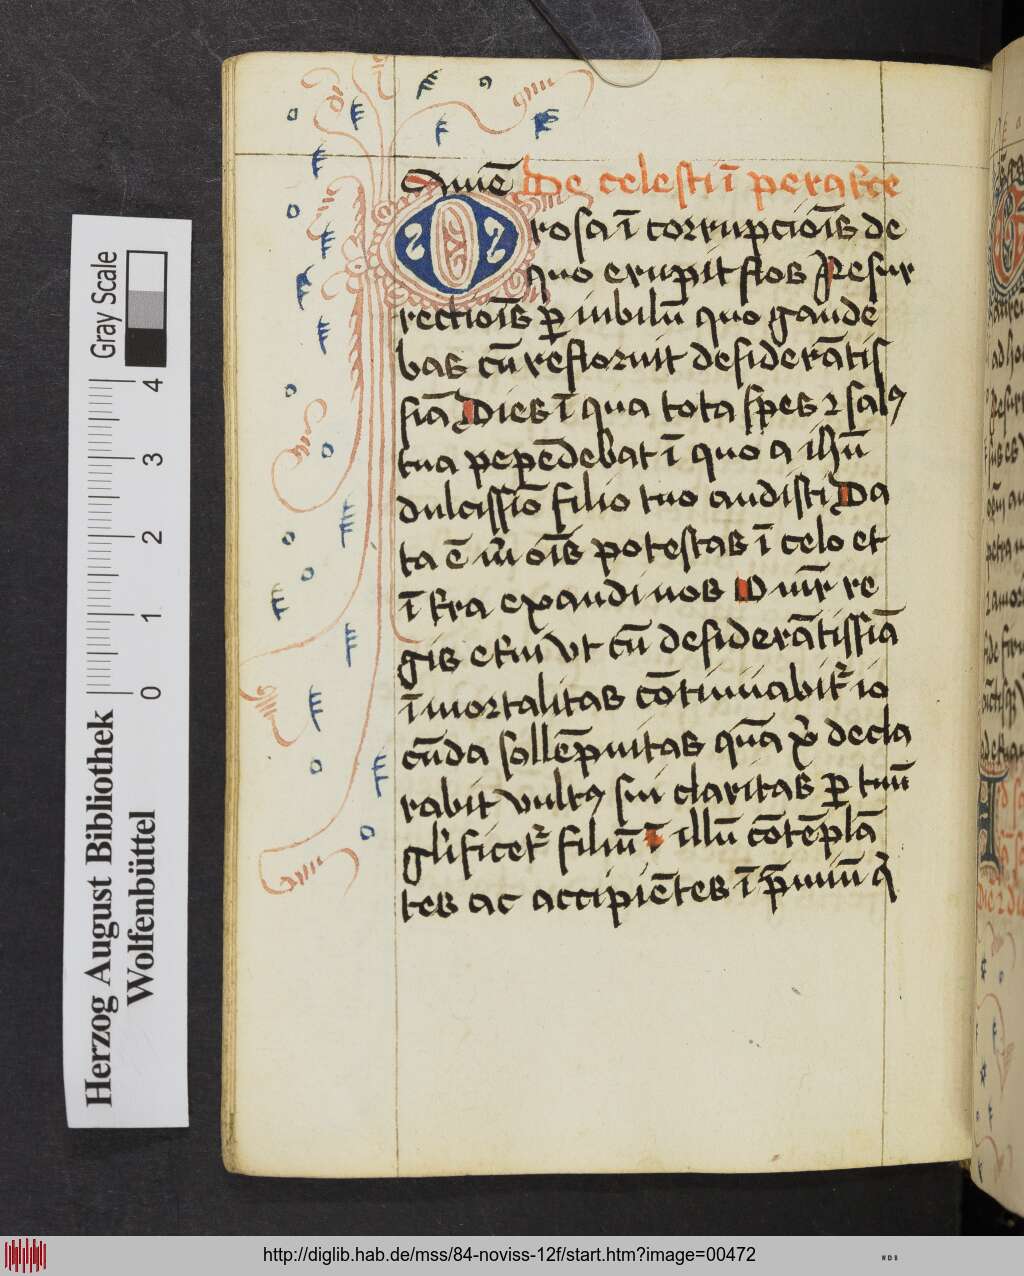 Amē De celesti ī perasce
O rosa ī corrupcioīs de
quo erupit flos Resur
rectioīs ꝑ iubilū quo gaude
bas cū refloruit desiderātis
siā Dies ī qua tota spes ⁊ salꝰ
tua pepēdebat ī quo a ihū
dulcissīo filio tuo audisti Da
ta ē m̄ oīs potestas ī celo et
ī t̄ra exaudi nos O mr̄ re
gis et̄ni vt cū desiderātissiā
īmortalitas cōtinuabit᷑ io
cūda sollēpnitas quā xp̄ decla
rabit vultꝰ sui claritas ꝑ tuū
gl̄ificet᷑ filiū ī illū cōtēplā
tes ac accipiētes ī p̄miū
Herzog August Bibliothek
Wolfenbüttel
Gray Scale
0 1 2 3 4
http://diglib.hab.de/mss/84-noviss-12f/start.htm?image=00472